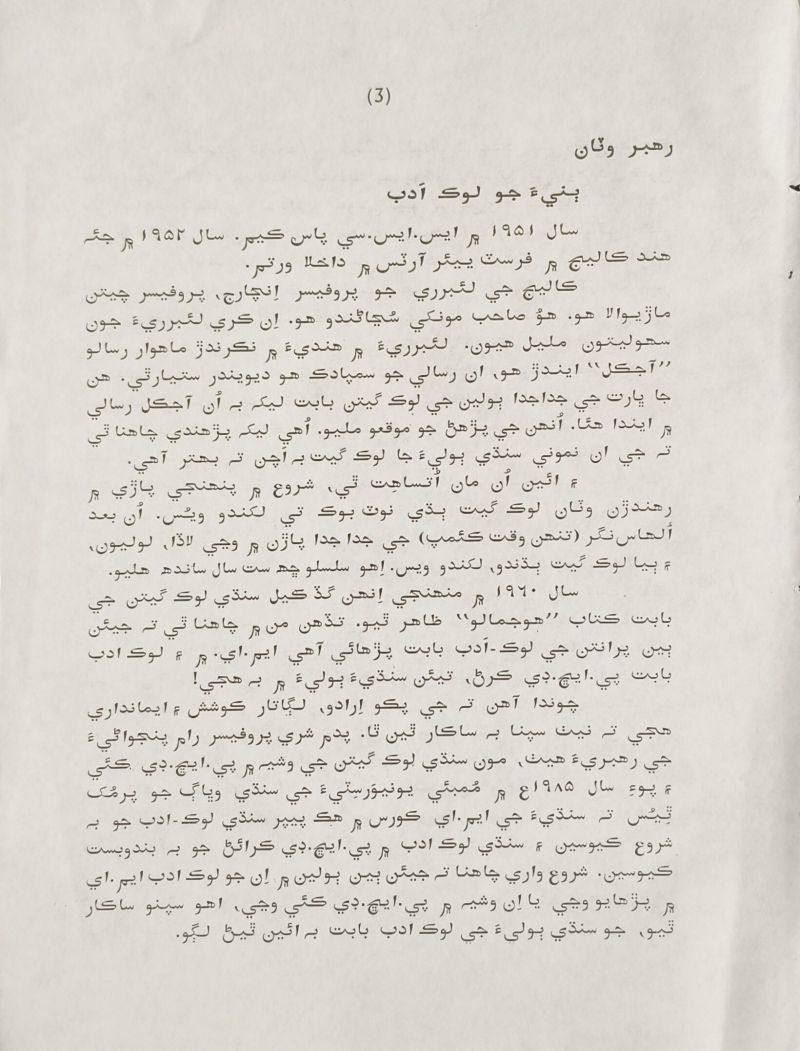 (3)
رهبر وٽان
ٻنيءَ جو لوڪ اَدب
سال ۱۹۵۱ ۾ ايس.ايس.سي پاس ڪيم. سال ۱۹۵۲ ۾ جئہ
هند ڪاليج ۾ فرسٽ ييئر آرٽس ۾ داخلا ورتم.
ڪاليج جي لئبرري جو پروفيسر اِنچارج، پروفيسر چيتن
ماڙيوالا هو. هوُ صاحب مونکي سُڃاڻندو هو. اِن ڪري لئبرريءَ جون
سهوليتون مليل هيون. لئبرريءَ ۾ هنديءَ ۾ نڪرندڙ ماهوار رسالو
”آجڪل“ ايندڙ هو، ان رسالي جو سمپادڪ هو ديويندر ستيارٿي. هن
جا ڀارت جي جداجدا ٻولين جي لوڪ گيتن بابت ليک بہ اُن آجڪل رسالي
۾ ايندا هئا. اُنهن جي پڙهڻ جو موقعو مليو. اُهي ليک پڙهندي چاهنا ٿي
تہ جي ان نموني سنڌي ٻوليءَ جا لوڪ گيت بہ اَچن تہ بهتر آهي.
۽ ائين اُن مان اُتساهِت ٿي، شروع ۾ پنهنجي پاڙي ۾
رهندڙن وٽان لوڪ گيت ٻڌي نوٽ بوڪ تي لکندو ويس. اُن بعد
اُلهاس‌نگر (تنهن وقت ڪئمپ) جي جدا جدا پاڙن ۾ وڃي لاڏا، لوليون،
۽ ٻيا لوڪ گيت ٻڌندو، لکندو ويس. اِهو سلسلو ڇهہ ست سال ساندهہ هليو.
سال ۱۹٦۰ ۾ منهنجي اِنهن گڏ ڪيل سنڌي لوڪ گيتن جي
بابت ڪتاب ”هوجمالو“ ظاهر ٿيو. تڏهن من ۾ چاهنا ٿي تہ جيئن
ٻين پرانتن جي لوڪ-اَدب بابت پڙهائي آهي ايم.اي. ۾ ۽ لوڪ ادب
بابت پي.ايڇ.ڊي ڪرڻ، تيئن سنڌيءَ ٻوليءَ ۾ بہ هجي!
چوندا آهن تہ جي پڪو اِرادو، لڳاتار ڪوشش ۽ ايمانداري
هجي تہ نيٺ سپنا بہ ساڪار ٿين ٿا. پدم شري پروفيسر رام پنجواڻيءَ
جي رهبريءَ هيٺ، مون سنڌي لوڪ گيتن جي وشيہ ۾ پي.ايڇ.ڊي ڪئي
۽ پوءِ سال ۱۹۸۵ع ۾ مُمبئي يونيوَرسِٽيءَ جي سنڌي وڀاڳ جو پرمُک
ٿِيُس تہ سنڌيءَ جي ايم.اي ڪورس ۾ هڪ پيپر سنڌي لوڪ-ادب جو بہ
شروع ڪيوسين ۽ سنڌي لوڪ ادب ۾ پي.ايڇ.ڊي ڪرائڻ جو بہ بندوبست
ڪيوسين. شروع واري چاهنا تہ جيئن ٻين ٻولين ۾ اِن جو لوڪ ادب ايم.اي
۾ پڙهايو وڃي يا اِن وشيہ ۾ پي.ايڇ.ڊي ڪئي وڃي، اهو سپنو ساڪار
ٿيو، جو سنڌي ٻوليءَ جي لوڪ ادب بابت بہ ائين ٿيڻ لڳو.